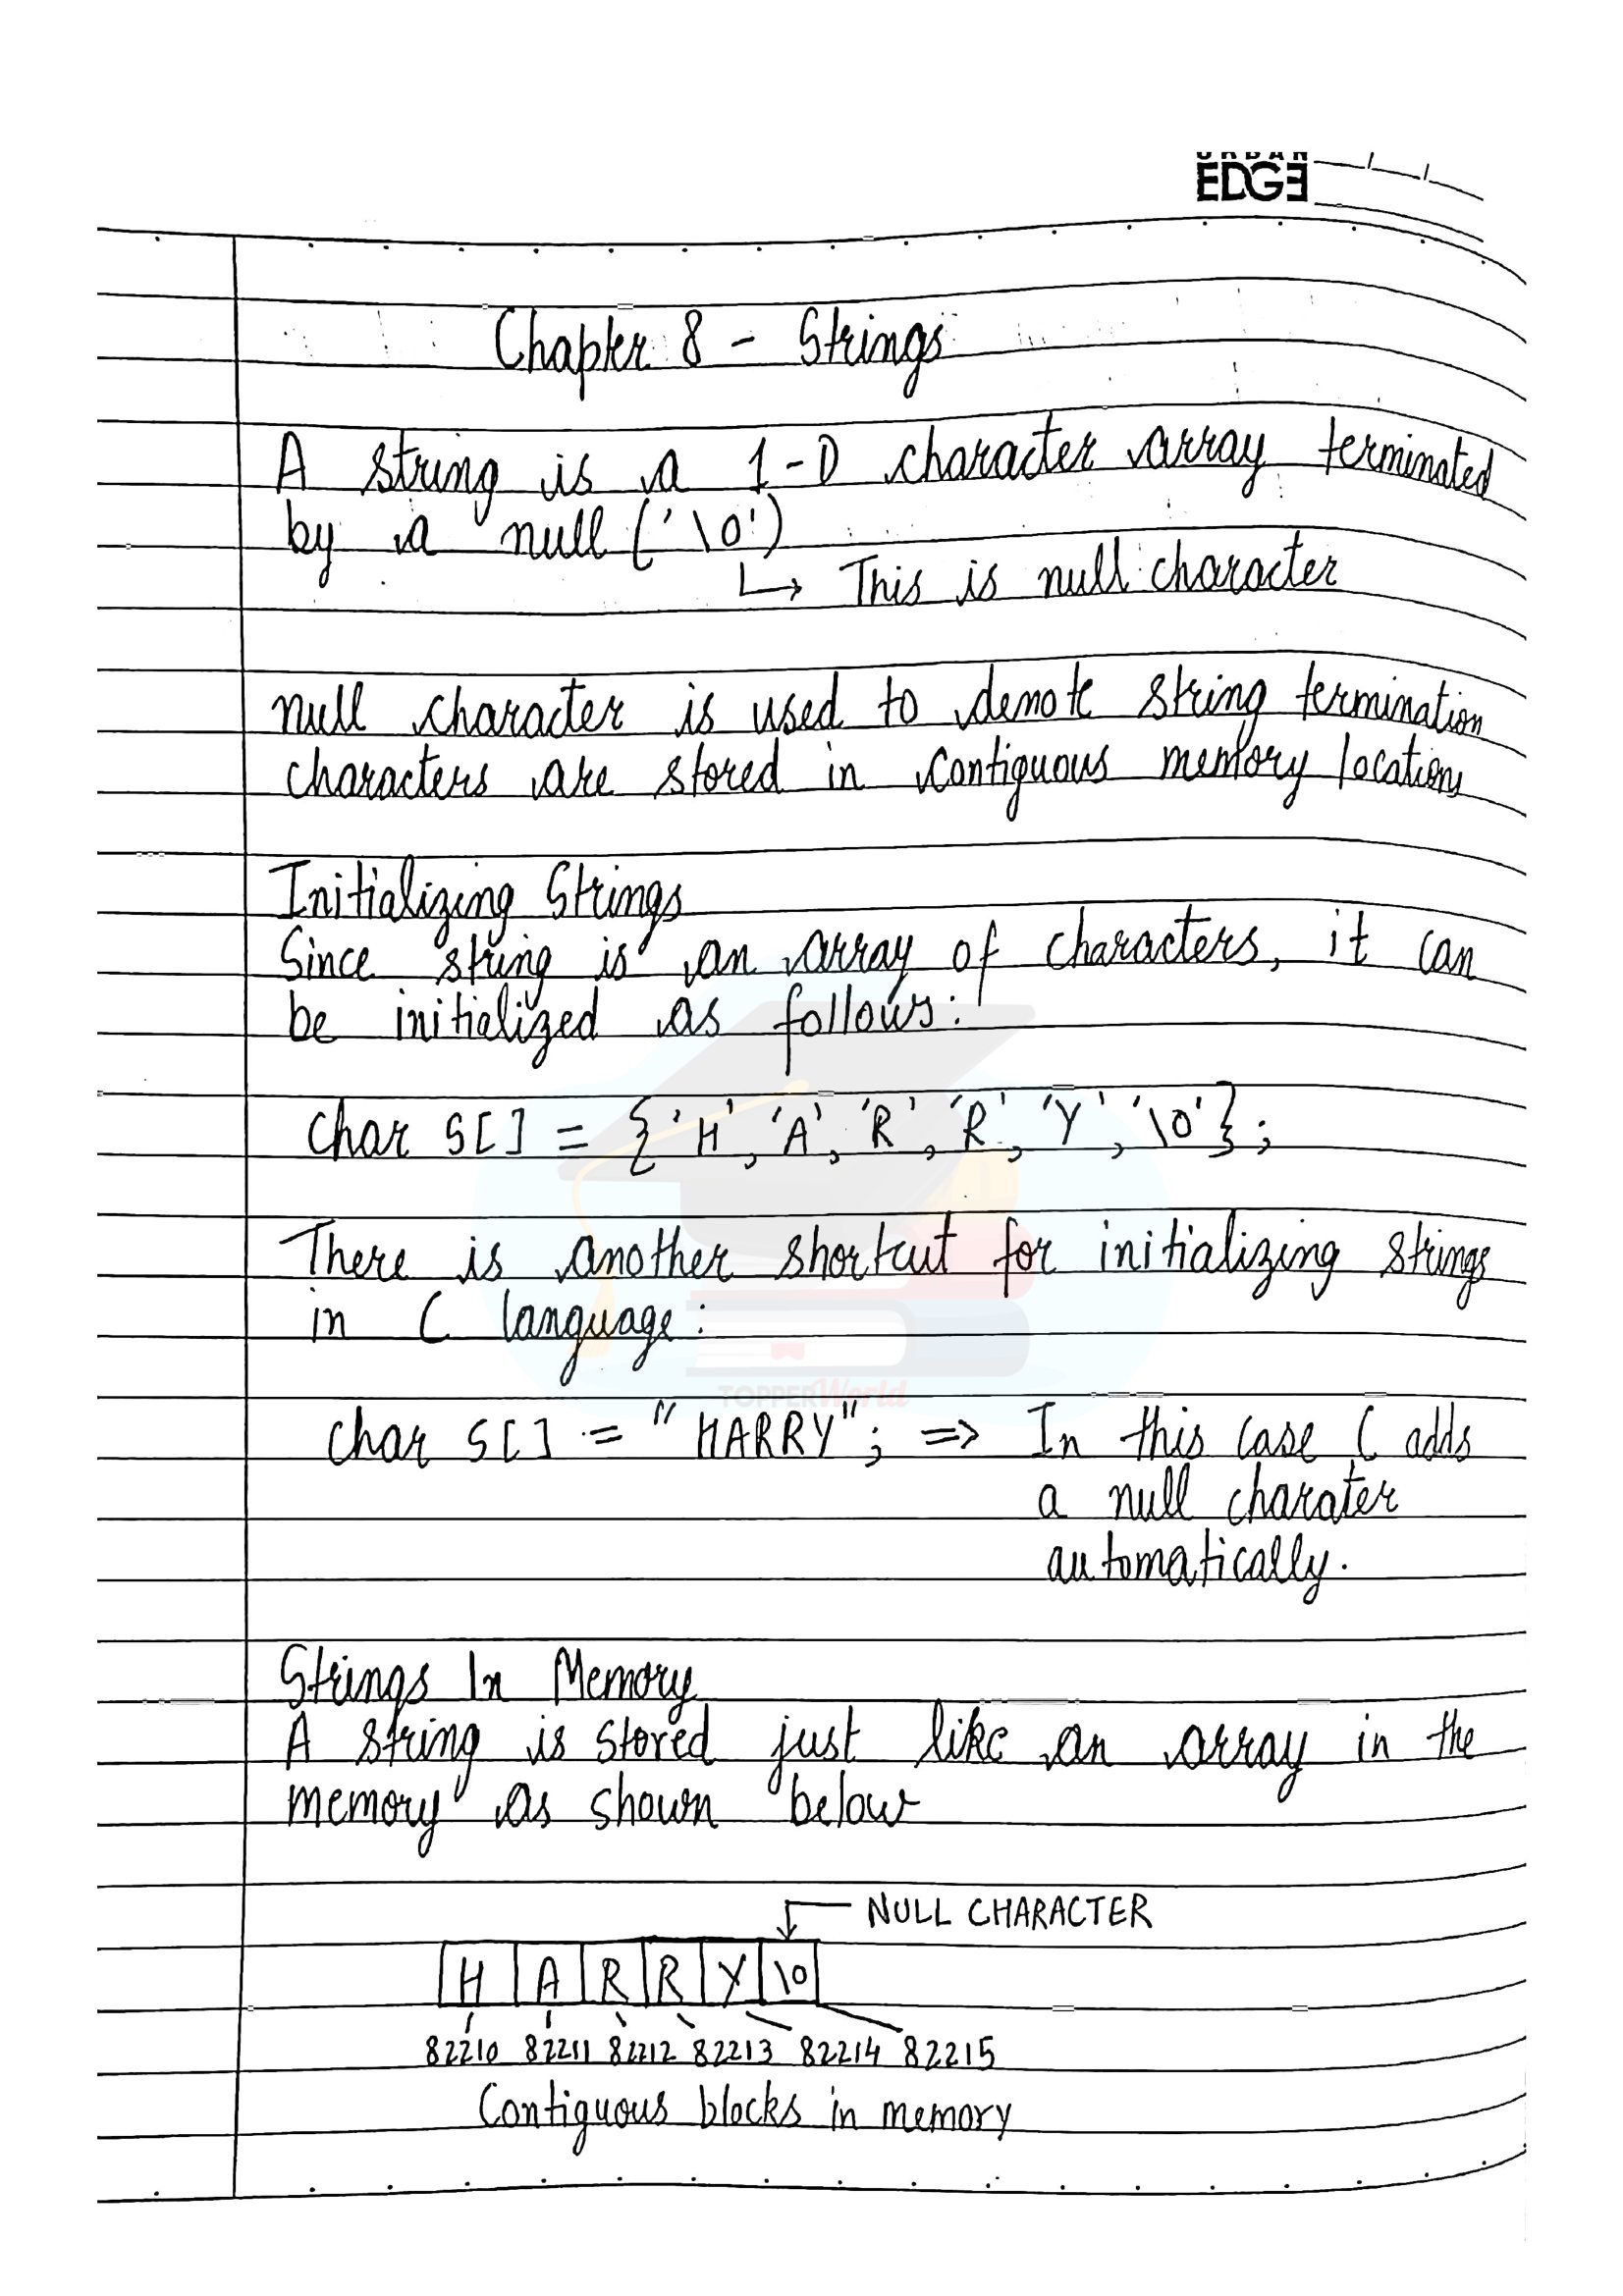 URBAN
EDGE
Chapter 8 - Strings
A string is a 1-D character array terminated
by a null ('\0')
↳ This is null character
null character is used to denote string termination
characters are stored in contiguous memory locations
Initializing Strings
Since string is an array of characters, it can
be initialized as follows:
char s[] = {'H', 'A', 'R', 'R', 'Y', '\0'};
There is another shortcut for initializing strings
in C language:
TOPPERWorld
char s[] = "HARRY"; => In this case C adds
a null charater
automatically.
Strings In Memory
A string is stored just like an array in the
memory as shown below
NULL CHARACTER
H A R R Y \0
82210 82211 82212 82213 82214 82215
Contiguous blocks in memory